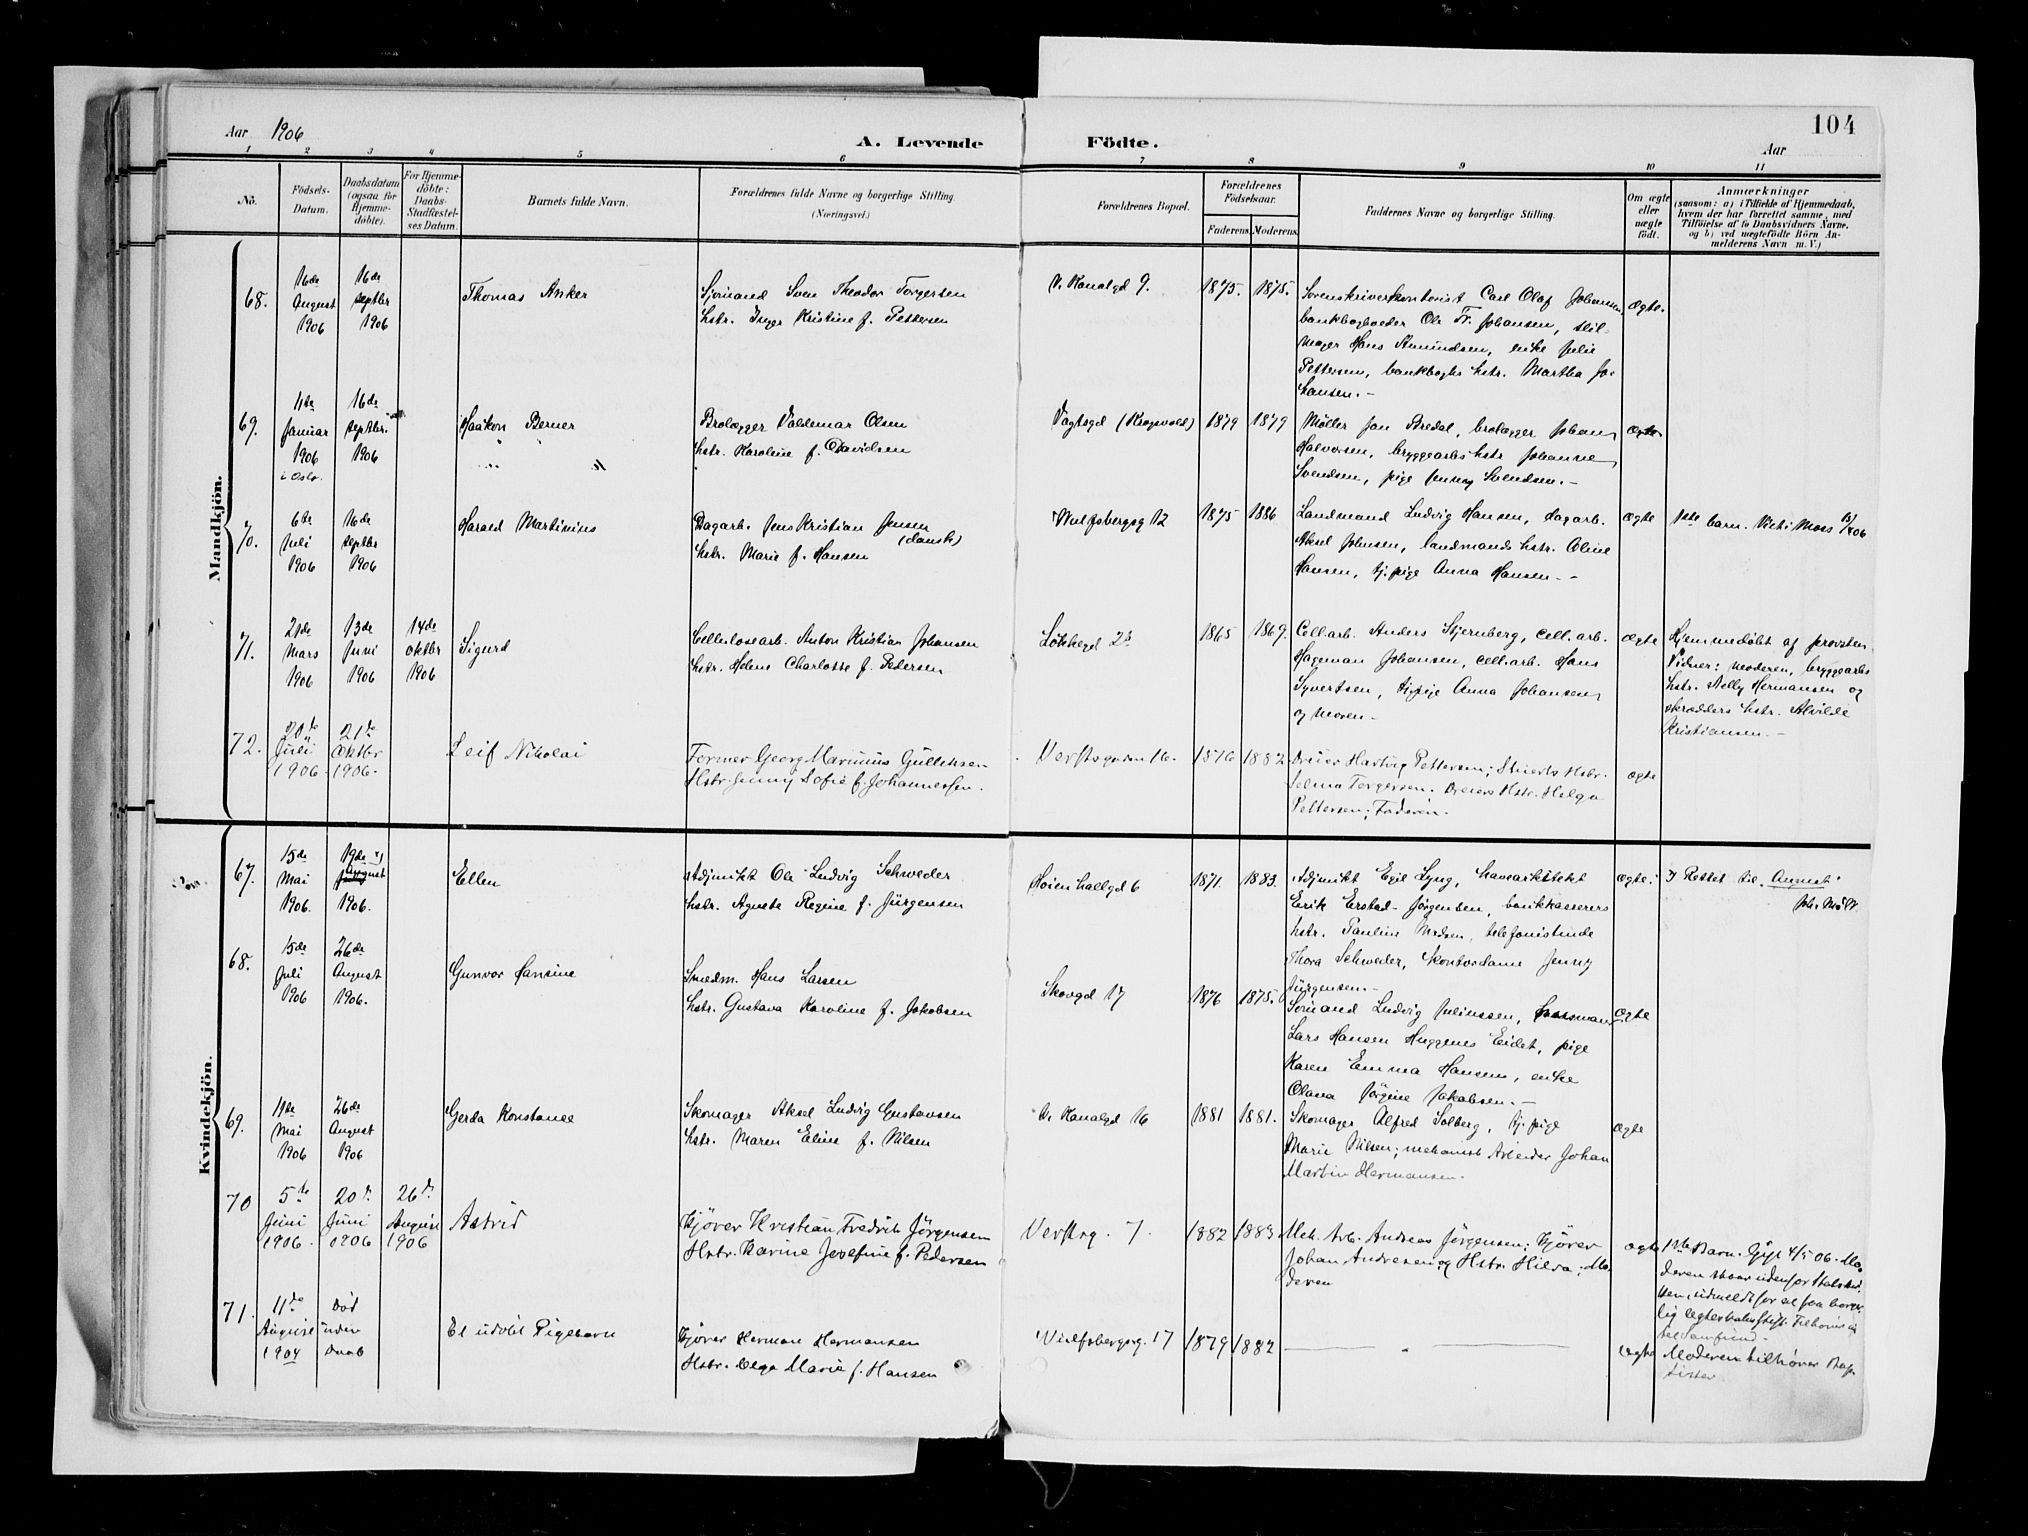 Aar 1906
A. Levende Födte.
104
Aar
1 2 3 4 5 6 7 8 9 10 11
No.
Födsels-
Datum.
Daabsdatum
(ogsaa for
Hjemme-
döbte).
For Hjemme-
döbte:
Daabs-
Stadfæstel-
ses Datum.
Barnets fulde Navn.
Forældrenes fulde Navne og borgerlige Stilling
(Næringsvei.)
Forældrenes Bopæl.
Forældrenes
Födselsaar.
Faderens. Moderens.
Faddernes Navne og borgerlige Stilling.
Om ægte
eller
uægte
født.
Anmærkninger
(saasom: a) i Tilfælde af Hjemmedaab,
hvem der har forrettet samme, med
Tilföielse af to Daabsvidners Navne,
og b) ved uægtefödte Börn An-
melderens Navn m. V.)
Mandkjön.
68.
16de
August
1906
16de
septbr
1906
Thomas Anker
Sjømand Sven Theodor Torgersen
hstr. Inga Kristine f. Pettersen
V. Kanalgd 9.
1875. 1875.
Sorenskriverkontorist Carl Olaf Johansen
bankbogholder Ole Fr. Johansen, stil-
mager Hans Amundsen, enke Julie
Pettersen, bankbogh. hstr. Martha Jo-
hansen. -
ægte.
69.
11te
Januar
1906
i Oslo.
16de
septbr.
1906
Haakon Berner
Brolægger Valdemar Olsen
hstr. Karoline f. Davidsen
Vagtsgd (Krogsvold)
1879 1879
Møller Jan Bredal, brolægger Johan
Halvorsen, bryggearb. hstr Johanne
Svendsen, pige Jenny Svendsen. -
ægte
70.
6te
Juli
1906
16de
septbr
1906
Harald Martinius
Dagarb. Jens Kristian Jensen
(dansk)
hstr. Marie f. Hansen
Wulfsbergsg 12
1875 1886
Landmand Ludvig Hansen, dagarb.
Aksel Johnsen, landmands hstr. Oline
Hansen, tj.pige Anna Hansen. -
ægte
1ste barn. Viet i Moss
71.
21de
Mars
1906
13de
Juni
1906
14de
oktbr
1906
Sigurd
Cellulosearb. Anton Kristian Johansen
hstr. Helene Charlotte f. Pedersen
Løkkegd 23
1865 1869.
Cell.arb. Anders Stjernberg, cell.arb.
Hageman Johansen, cell.arb. Hans
Syvertsen, tj.pige Anna Johansen
og moren -
ægte
Hjemmedøbt af provsten
Vidner: moderen, bryggearb.
hstr. Nelly Hermansen og
skrædders hstr. Alvilde
Kristiansen. -
72.
20de
Juli
1906
21de
Oktbr
1906.
Leif Nikolai
Former Georg Marinius Gulliksen
Hstr. Jenny Sofie f. Johannessen.
Verftsgaden 16.
1876 1882
Dreier Hartvig Pettersen; Stuerts Hstr.
Selma Torgersen. Dreiers Hstr. Helga
Pettersen; Faderen.
ægte
Kvindekjön.
67.
15de
Mai
1906.
19de
August
1906.
Ellen
Adjunkt Ole Ludvig Schweder
hstr. Agnete Regine f. Jürgensen
Høienhallgd 6
1871. 1883.
Adjunkt Egil Lyng, havearkitekt
Erik Erstad-Jørgensen, bankkasserers
hstr. Pauline Madsen, telefonistinde
Thora Schweder, Kontordame Jenny
Jürgensen. -
ægte.
Rettet til "August"
68.
15de
Juli
1906
26de
August
1906.
Gunvor Hansine
Smedm. Hans Larsen
hstr. Gustava Karoline f. Jakobsen
Skovgd 17
1876 1875.
Sømand Ludvig Juliussen, husmand
Lars Hansen Huggenes Eidet, pige
Karen Emma Hansen, enke
Olava Jørgine Jakobsen. -
ægte
69.
11te
Mai
1906
26de
August
1906
Gerda Konstanse
Skomager Aksel Ludvig Gustavsen
hstr. Maren Eline f. Nilsen
V. Kanalgd 16
1881 1881.
Skomager Alfred Solberg, tj.pige
Marie Nilsen; mekanisk Arbeider Johan
Martin Hermansen.
ægte
70
5te
Juni
1906
20de
Juni
1906
26de
August
1906
Astrid
Kjører Kristian Fredrik Jörgensen
Hstr. Karine Josefine f. Pedersen
Verftsg. 7.
1882 1883
Mek. Arb. Andreas Jørgensen; Kjører
Johan Andresen og Hstr. Hilda; Mo-
deren
ægte
1ste Barn. Gift 4/5 06. Mo-
deren staar udenfor Statskir-
ken, udmeldt for at faa borger-
lig Ægteskabsstift.
71.
11te
August
1904
Død
uden
Daab
Et udöbt Pigebarn
Kjører Herman Hermansen
Hstr. Olga Marie f. Hansen
Wulfsbergsg. 17
1879 1882
ægte
Moderen tilhører Bap-
tister